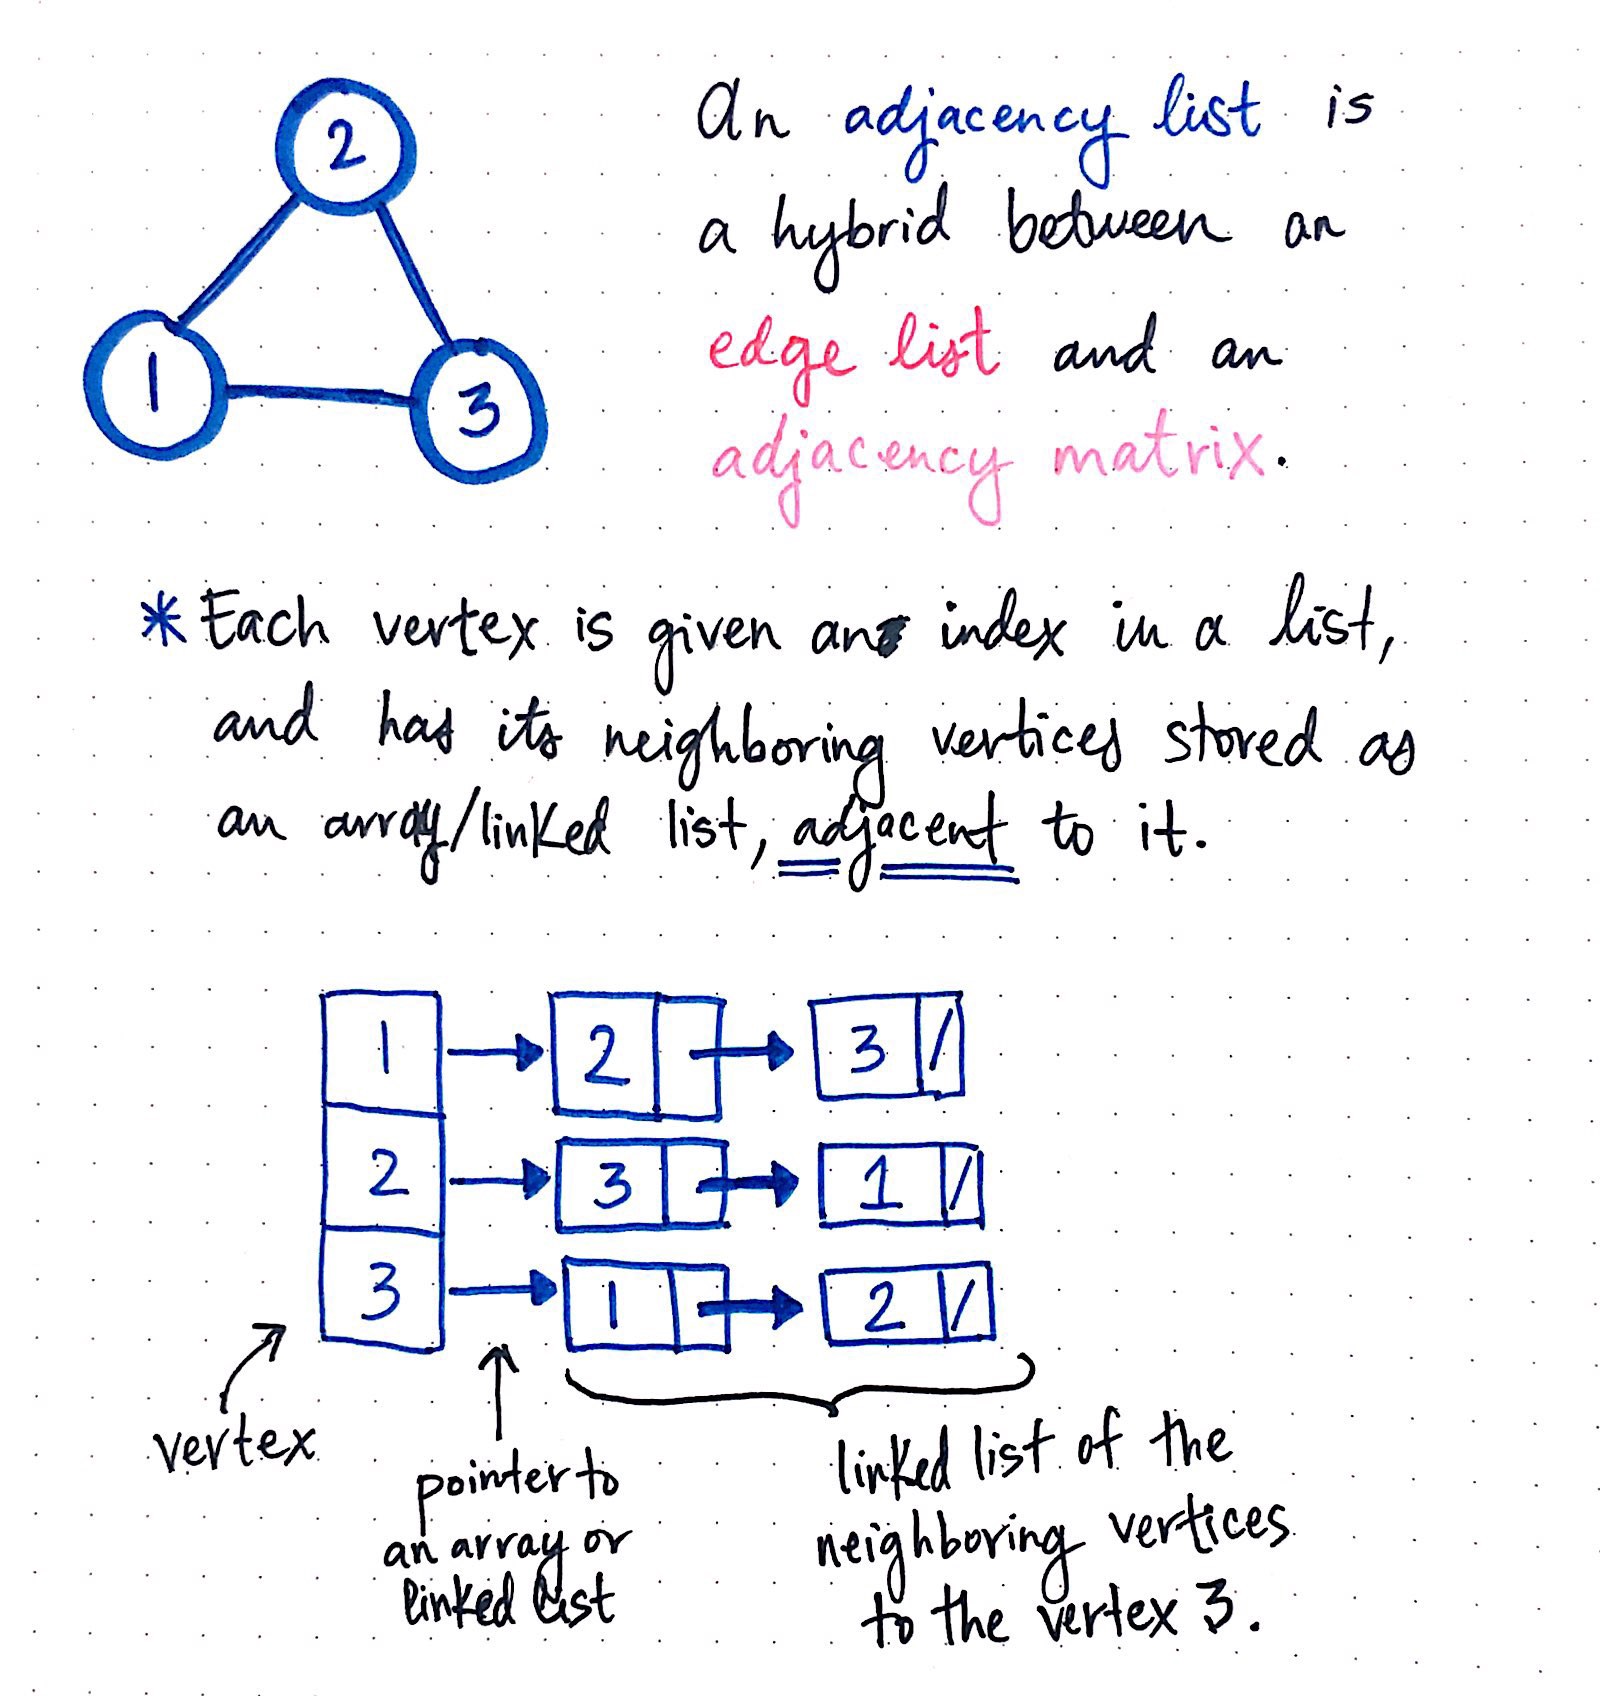 2
1
3
An adjacency list is
a hybrid between an
edge list and an
adjacency matrix.
* Each vertex is given an index in a list,
and has its neighboring vertices stored as
an array/linked list, adjacent to it.
1 2 3 /
2 3 1 /
3 1 2 /
vertex
pointer to
an array or
linked list
linked list of the
neighboring vertices
to the vertex 3.